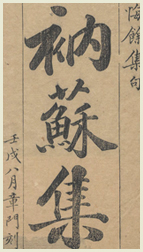 悔餘集句
衲蘇集
壬戌八月章門刻